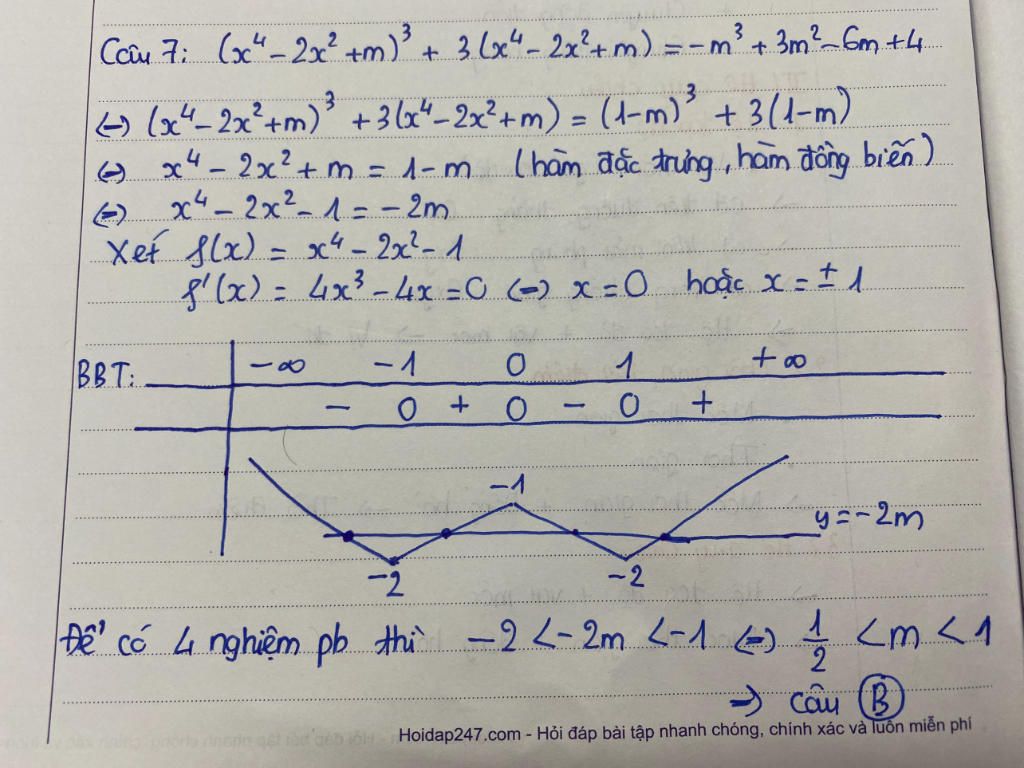 Câu 7: (x⁴ - 2x² + m)³ + 3(x⁴ - 2x² + m) = -m³ + 3m² - 6m + 4
(=) (x⁴ - 2x² + m)³ + 3(x⁴ - 2x² + m) = (1-m)³ + 3(1-m)
(=) x⁴ - 2x² + m = 1 - m (hàm đặc trưng, hàm đồng biến)
(=) x⁴ - 2x² - 1 = -2m
Xét f(x) = x⁴ - 2x² - 1
f'(x) = 4x³ - 4x = 0 (=) x = 0 hoặc x = ± 1
BBT: -∞ -1 0 1 +∞
- 0 + 0 - 0 +
-1
y = -2m
-2 -2
Để có 4 nghiệm pb thì -2 < -2m < -1 (=) 1/2 < m < 1
=) Câu B
Hoidap247.com - Hỏi đáp bài tập nhanh chóng, chính xác và luôn miễn phí